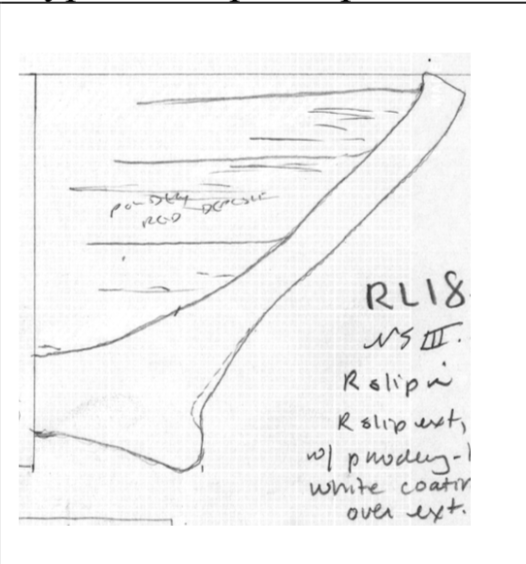 POWDERY DEPOSIT
RED
RL18
NS III.
R slip in
R slip ext,
w/ powdery-
white coatin
over ext.